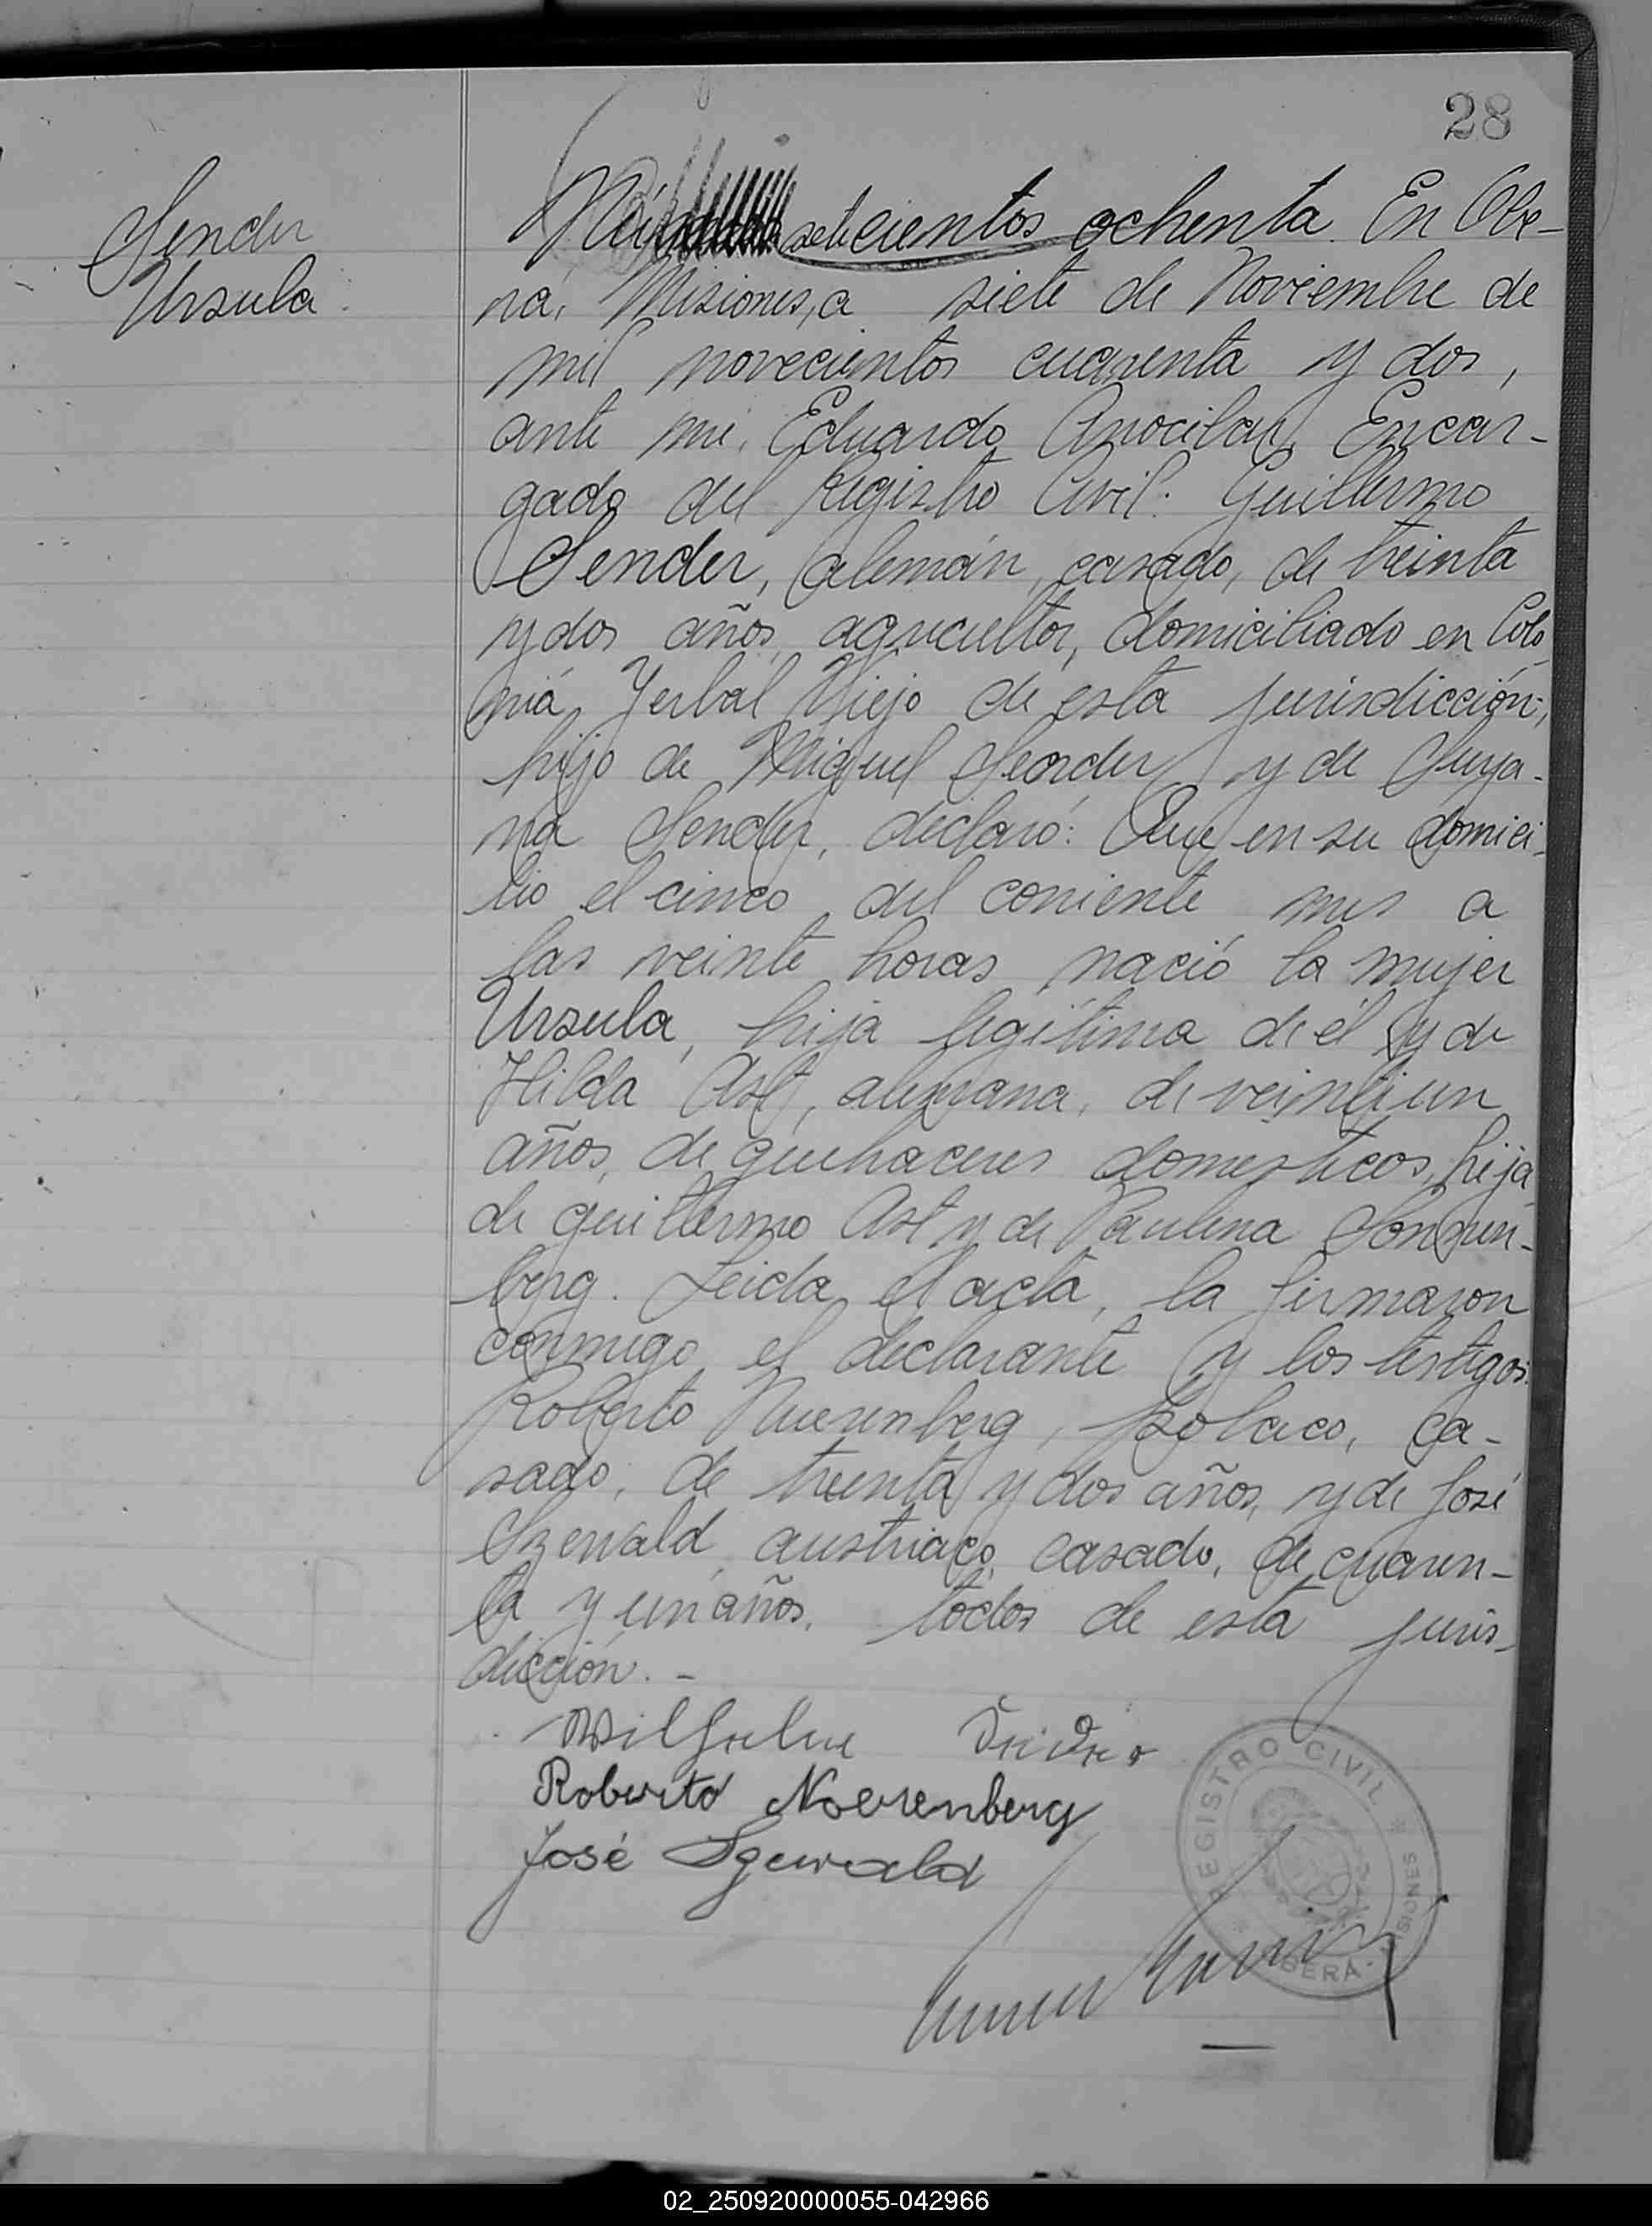 28
Sender
Ursula
setecientos ochenta. En Obe-
rá, Misiones, a siete de Noviembre de
mil novecientos cuarenta y dos,
ante mi, Eduardo Encar-
gado del Registro Civil: Guillermo
Sender, alemán, casado, de treinta
y dos años, agricultor, domiciliado en Colo
nia Yerbal Viejo de esta jurisdicción,
hijo de Miguel Sender y de
Sender, declaró: Que en su domici-
lio el cinco del corriente mes a
las veinte horas nació la mujer
Ursula, hija legítima de él y de
Hilda Ast, alemana, de veintiun
años, de quehaceres domesticos, hija
de guillermo Ast y de Paulina
berg. Leida el acta, la firmaron
conmigo el declarante y los testigos:
Roberto Nuerenberg, polaco, ca-
sado, de treinta y dos años, y de José
austriaco, casado, de cuaren-
ta y un años, todos de esta juris-
dicción. -
Wilhelm
Roberto Noerenberg
José
REGISTRO CIVIL
OBERA - MISIONES
02_250920000055-042966